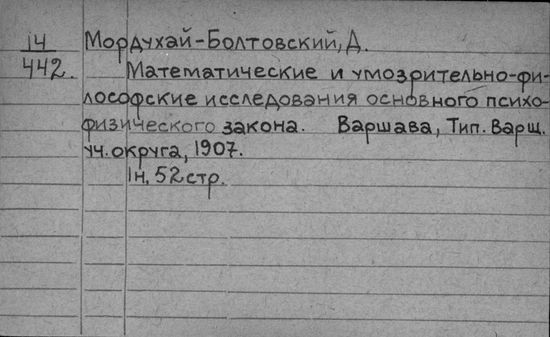 14
442.
Мордухай-Болтовский, Д.
Математические и умозрительно-фи-
лософские исследования основного психо-
физического закона. Варшава, Тип. Варш.
уч. округа, 1907.
1н, 52 стр.